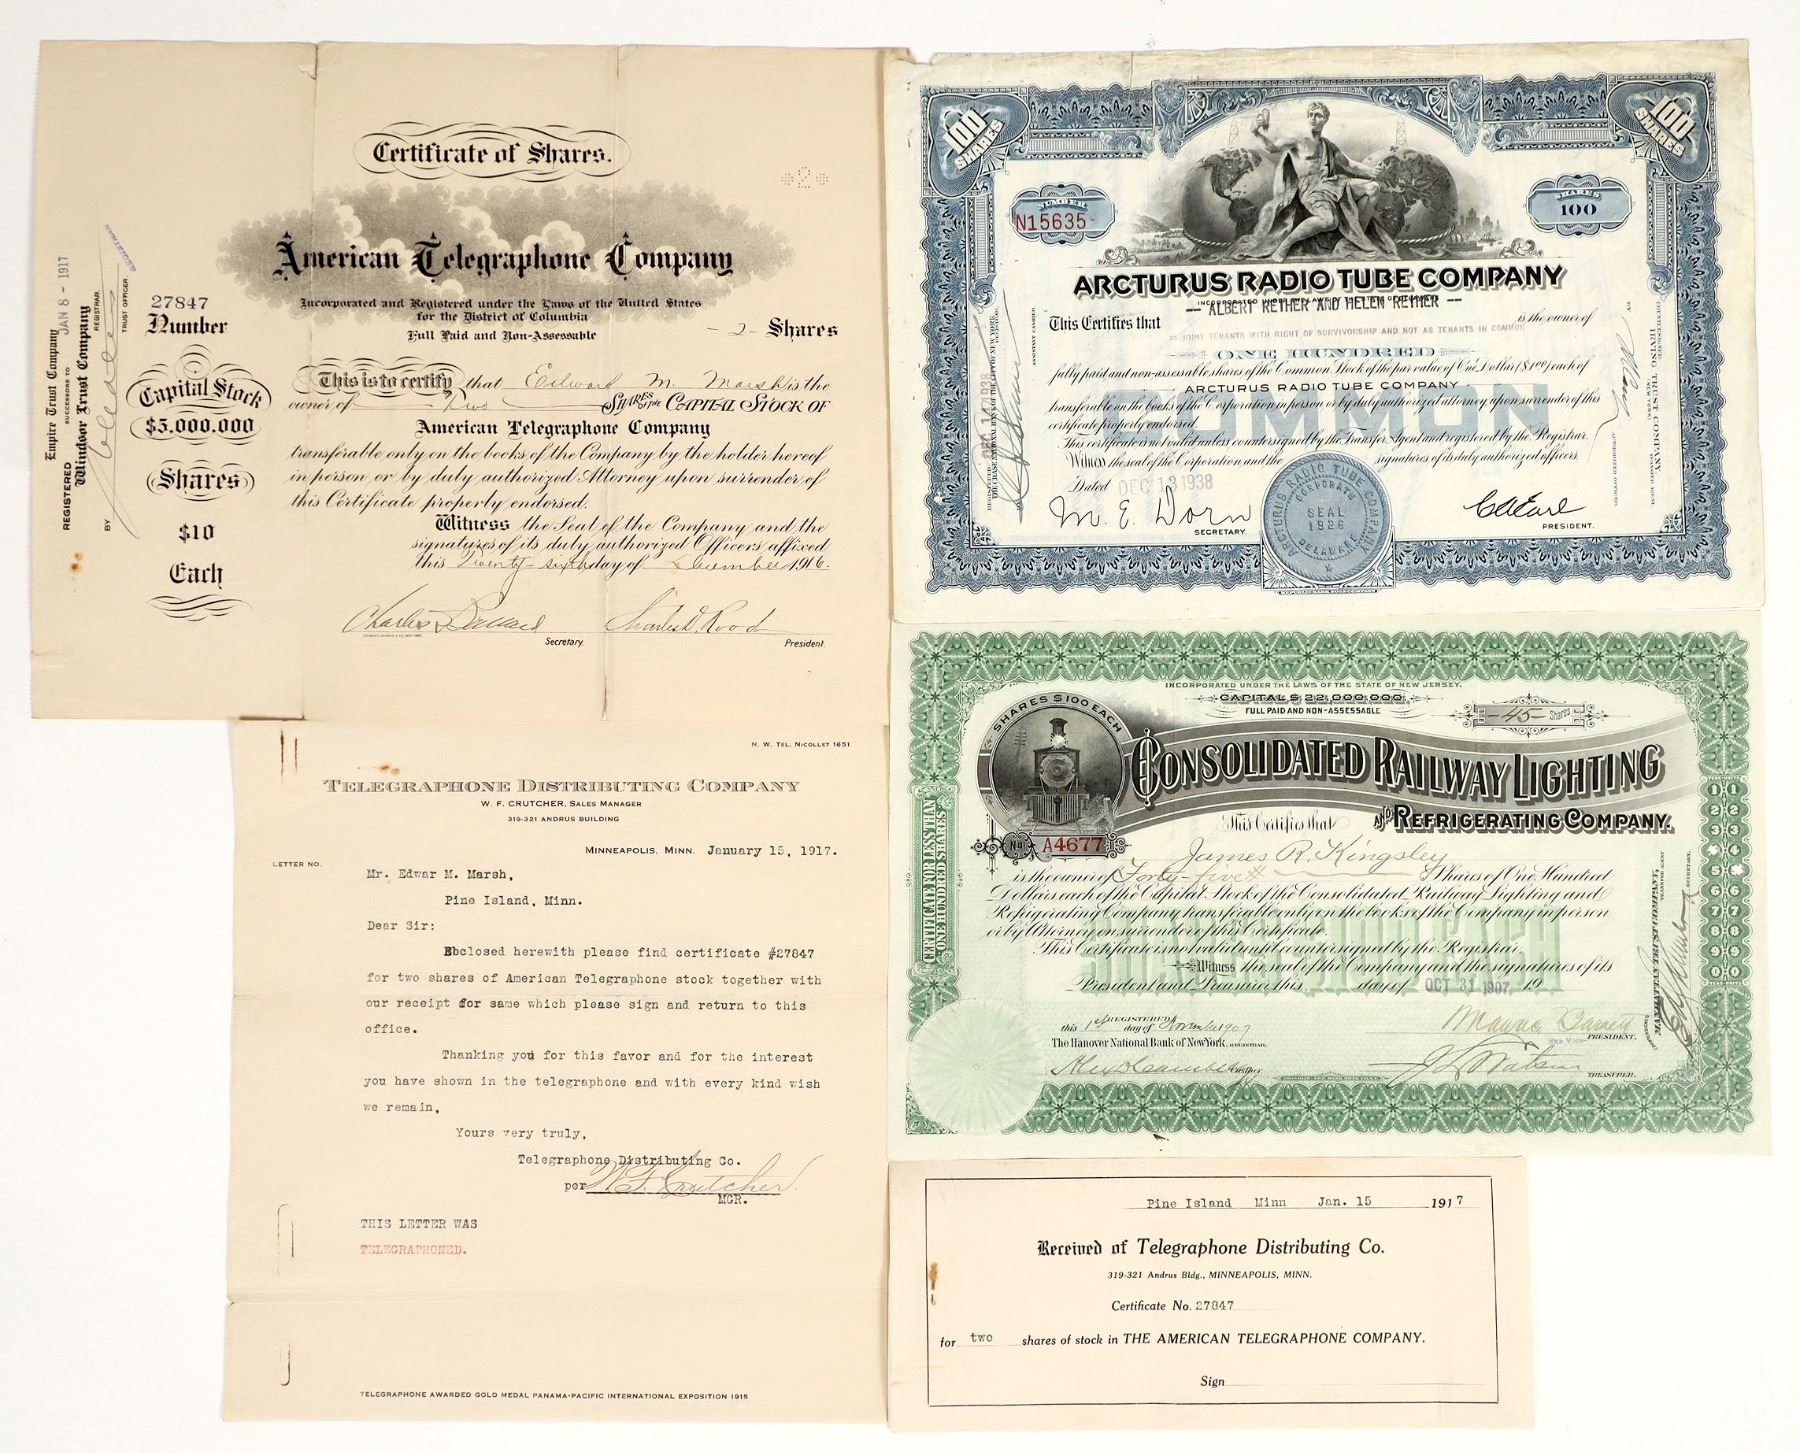 Certificate of Shares.
2
American Telegraphone Company
Incorporated and Registered under the Laws of the United States
for the District of Columbia
Full Paid and Non-Assessable
- 2 - Shares
27847
Number
Capital Stock
$5.000.000
Shares
$10
Each
REGISTERED JAN 8 - 1917
Empire Trust Company
SUCCESSORS TO
Windsor Trust Company
REGISTRAR.
BY
TRUST OFFICER.
This is to certify that Edward M. Marsh is the
owner of Two SHARES OF THE CAPITAL STOCK OF
American Telegraphone Company
transferable only on the books of the Company by the holder hereof
in person or by duly authorized Attorney upon surrender of
this Certificate properly endorsed.
Witness the Seal of the Company and the
signatures of its duly authorized Officers affixed
this Twenty-sixth day of December 1916.
Charles D. Rood
Secretary.
President.
N. W. TEL. NICOLLET 1651
TELEGRAPHONE DISTRIBUTING COMPANY
W. F. CRUTCHER, SALES MANAGER
319-321 ANDRUS BUILDING
MINNEAPOLIS, MINN. January 15, 1917.
LETTER NO.
Mr. Edwar M. Marsh,
Pine Island, Minn.
Dear Sir:
Ebclosed herewith please find certificate #27847
for two shares of American Telegraphone stock together with
our receipt for same which please sign and return to this
office.
Thanking you for this favor and for the interest
you have shown in the telegraphone and with every kind wish
we remain,
Yours very truly,
Telegraphone Distributing Co.
per W. F. Crutcher.
MGR.
THIS LETTER WAS
TELEGRAPHONED.
TELEGRAPHONE AWARDED GOLD MEDAL PANAMA-PACIFIC INTERNATIONAL EXPOSITION 1915
100 SHARES
100 SHARES
NUMBER
N15635
SHARES
100
ARCTURUS RADIO TUBE COMPANY
-- ALBERT REIHER AND HELEN REIHER --
This Certifies that is the owner of
AS JOINT TENANTS WITH RIGHT OF SURVIVORSHIP AND NOT AS TENANTS IN COMMON
ONE HUNDRED
fully paid and non-assessable shares of the Common Stock of the par value of One Dollar ($1.00) each of
ARCTURUS RADIO TUBE COMPANY
transferable on the books of the Corporation in person or by duly authorized attorney upon surrender of this
certificate properly endorsed.
This certificate is not valid unless countersigned by the Transfer Agent and registered by the Registrar.
Witness the seal of the Corporation and the signatures of its duly authorized officers.
COMMON
Dated DEC 13 1938
M. E. Dorn
SECRETARY.
PRESIDENT.
ARCTURUS RADIO TUBE COMPANY
CORPORATE
SEAL
1926
DELAWARE
DEC 14 1938
ASSISTANT CASHIER
COUNTERSIGNED
IRVING TRUST COMPANY
(NEW YORK)
TRANSFER AGENT
BY
AUTHORIZED OFFICER
INCORPORATED UNDER THE LAWS OF THE STATE OF NEW JERSEY.
CAPITAL $ 22,000,000.
FULL PAID AND NON-ASSESSABLE
-45- Shares
SHARES $100 EACH
CONSOLIDATED RAILWAY LIGHTING
AND REFRIGERATING COMPANY.
No. A4677
This Certifies that
James R. Kingsley
is the owner of Forty-five Shares of One Hundred
Dollars each of the Capital Stock of the Consolidated Railway Lighting and
Refrigerating Company transferable only on the books of the Company in person
or by Attorney on surrender of this Certificate.
This Certificate is not valid until countersigned by the Registrar.
Witness the seal of the Company and the signatures of its
President and Treasurer this day of OCT 31 1907, 19
REGISTERED
this 1st day of November 1907
The Hanover National Bank of New York, REGISTRAR.
Cashier.
PRESIDENT.
J L Watson
TREASURER.
CERTIFICATE FOR LESS THAN
ONE HUNDRED SHARES
TENS UNITS
1 1
2 2
3 3
4 4
5 5
6 6
7 7
8 8
9 9
0 0
COUNTERSIGNED
MANHATTAN TRUST COMPANY,
TRANSFER AGENT
SECRETARY.
Pine Island Minn Jan. 15 1917
Received of Telegraphone Distributing Co.
319-321 Andrus Bldg., MINNEAPOLIS, MINN.
Certificate No. 27847
for two shares of stock in THE AMERICAN TELEGRAPHONE COMPANY.
Sign